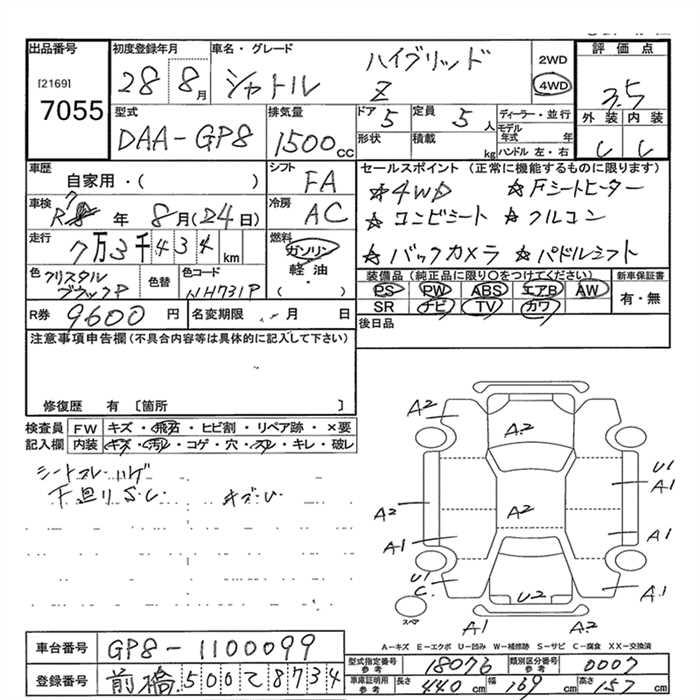 出品番号
[2169]
7055
初度登録年月
28 8月
車名・グレード
ハイブリッド
シャトル Z
2WD
4WD
評価点
3.5
外装 内装
C C
型式
DAA-GP8
排気量
1500cc
ドア 5
形状
定員 5人
積載 kg
ディーラー・並行
モデル年式 年
ハンドル 左・右
車歴
自家用・( )
シフト
FA
車検
R7年 8月(24日)
冷房
AC
走行
7万3千434km
燃料
ガソリン
軽油
・
( )
色
クリスタルブラックP
色替
色コード
NH731P
セールスポイント(正常に機能するものに限ります)
☆4WD ☆Fシートヒーター
☆コンビシート ☆フルコン
☆バックカメラ ☆パドルシフト
装備品(純正品に限り○をつけてください)
PS PW ABS エアB AW
SR ナビ TV カワ
新車保証書
有・無
R券 9600円
名変期限 月 日
後日品
注意事項申告欄(不具合内容等は具体的に記入して下さい)
修復歴 有 〔箇所 〕
検査員記入欄
FW キズ・飛石・ヒビ割・リペア跡・×要
内装 キズ・汚レ・コゲ・穴・スレ・キレ・破レ
シートスレ ハゲ
下廻りS.C.
A2
A2
A2
A2
A1
U1
A1
A1
U1
C.
U2
A1
A1
A2
スペア
A-キズ E-エクボ U-凹み W-補修跡 S-サビ C-腐食 XX-交換済
車台番号
GP8-1100099
登録番号
前橋500て8734
型式指定番号参考
18076
類別区分番号参考
0007
車庫証明用参考
長さ 440cm
幅 169cm
高さ 157cm